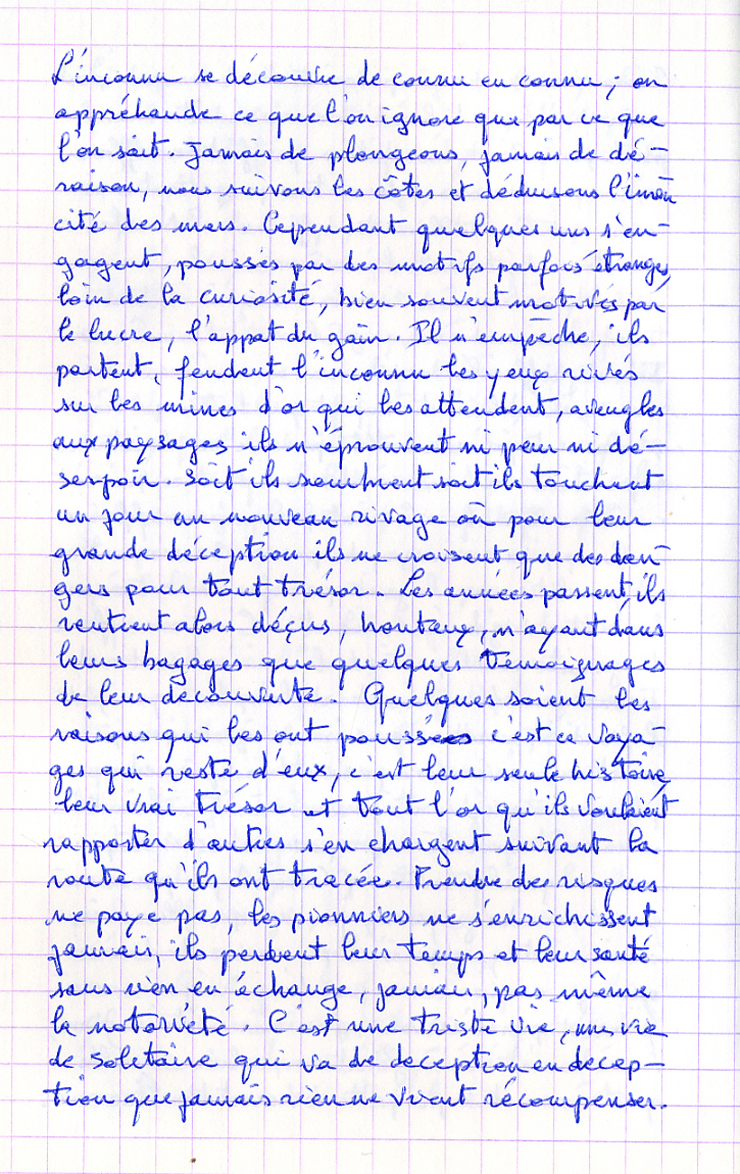 L'inconnu se découvre de connu en connu ; on
appréhende ce que l'on ignore que par ce que
l'on sait. Jamais de plongeons, jamais de dé-
raison, nous suivons les côtes et déduisons l'imen
cité des mers. Cependant quelques uns s'en-
gagent, poussés par des motifs parfois étranges,
loin de la curiosité, bien souvent motivés par
le lucre, l'appat du gain. Il n'empêche, ils
partent, fendent l'inconnu les yeux rivés
sur les mines d'or qui les attendent, aveugles
aux paysages ils n'éprouvent ni peur ni dé-
sespoir. Soit ils sombrent soit ils touchent
un jour un nouveau rivage où pour leur
grande déception ils ne croisent que des dan-
gers pour tout trésor. Les années passent, ils
rentrent alors déçus, honteux, n'ayant dans
leurs bagages que quelques témoignages
de leur découverte. Quelques soient les
raisons qui les ont poussés c'est ce voya-
ges qui reste d'eux, c'est leur seule histoire,
leur vrai trésor et tout l'or qu'ils voulaient
rapporter d'autres s'en chargent suivant la
route qu'ils ont tracée. Prendre des risques
ne paye pas, les pionniers ne s'enrichissent
jamais, ils perdent leur temps et leur santé
sans rien en échange, jamais, pas même
la notoriété. C'est une triste vie, une vie
de solitaire qui va de deception en decep-
tion que jamais rien ne vient récompenser.